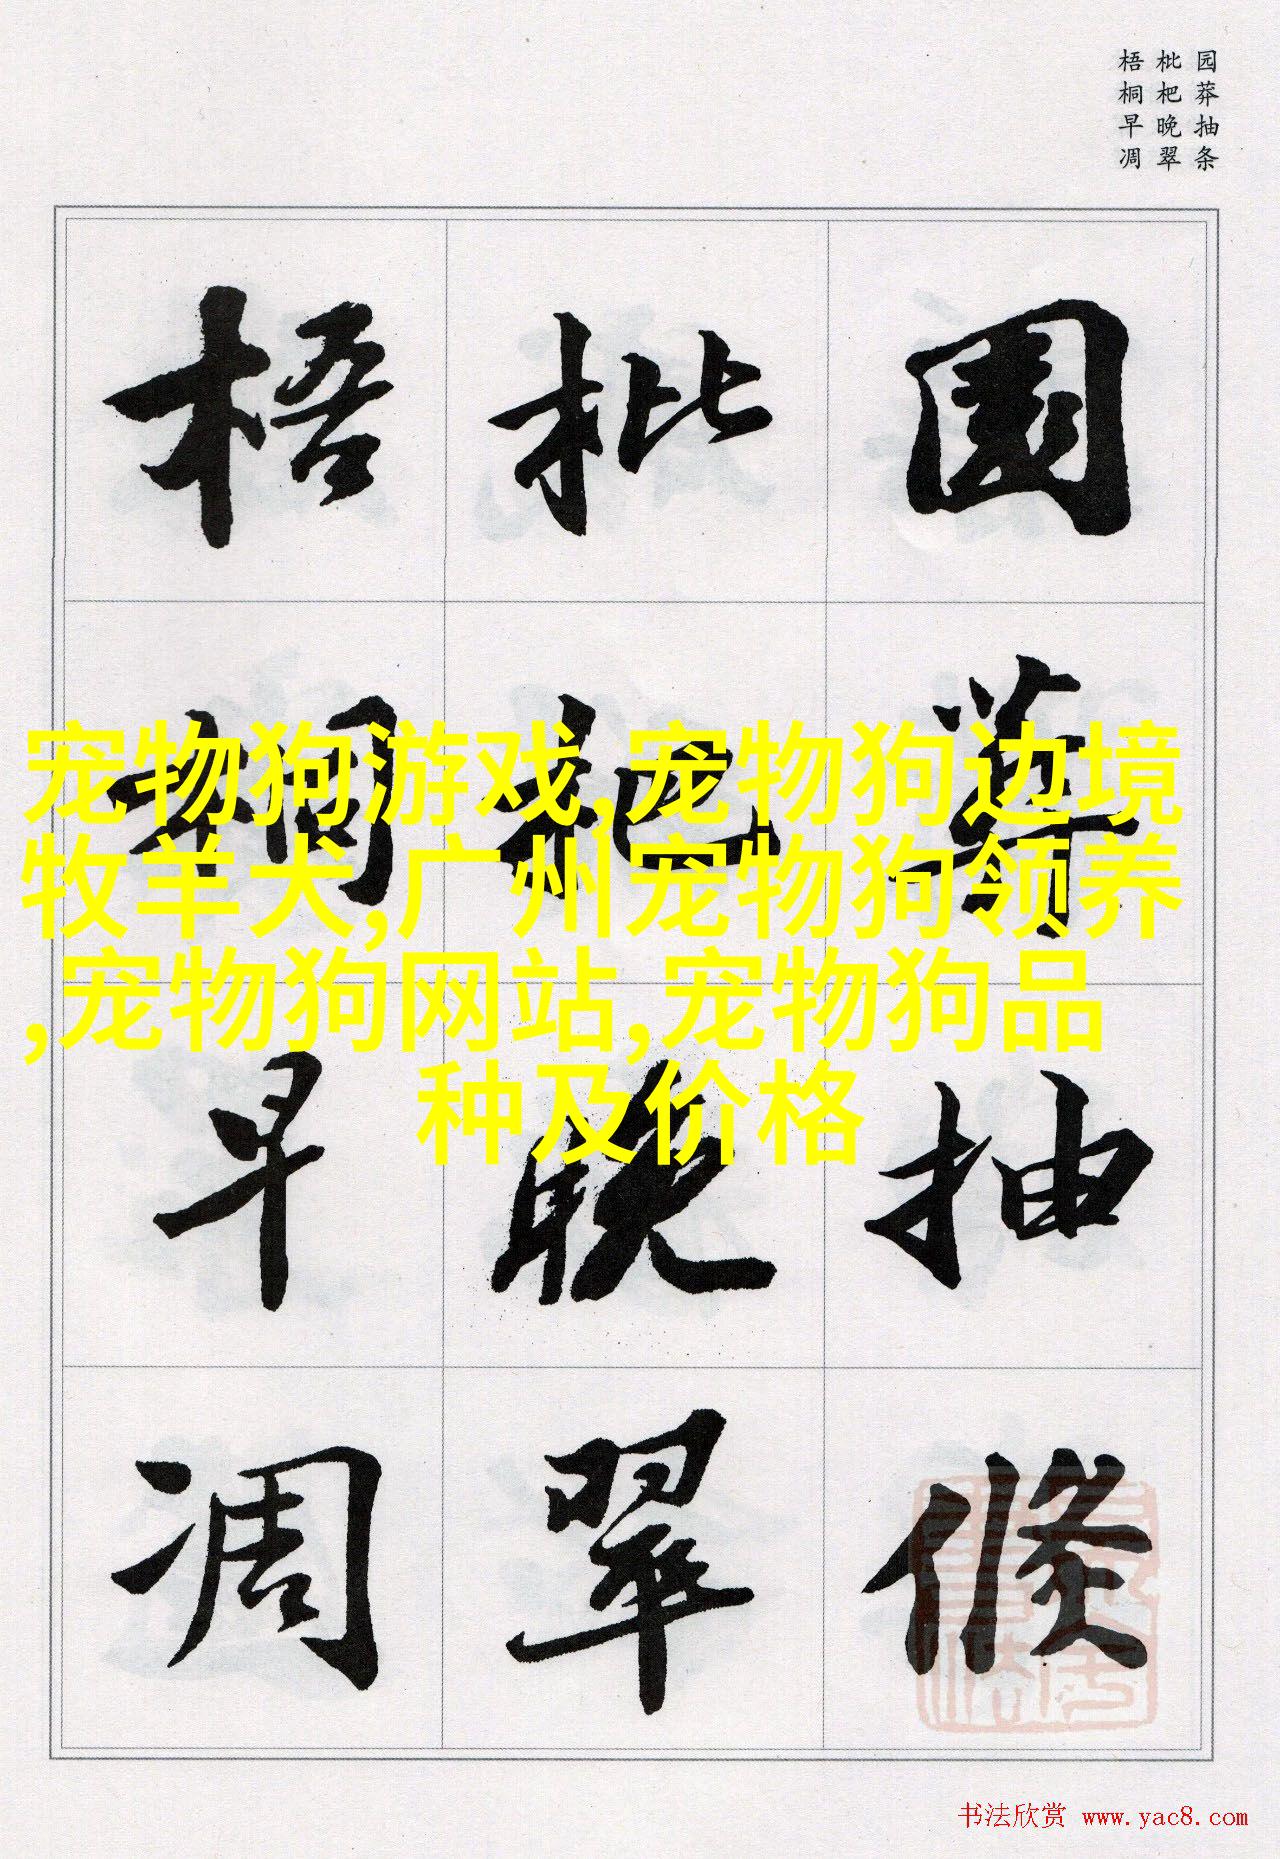 园莽抽条
枇杷晚翠
梧桐早凋
園莽抽條
枇杷晚翠
梧桐早凋
宠物狗游戏,宠物狗边境
牧羊犬,广州宠物狗领养
,宠物狗网站,宠物狗品
种及价格
书法欣赏 www.yac8.com